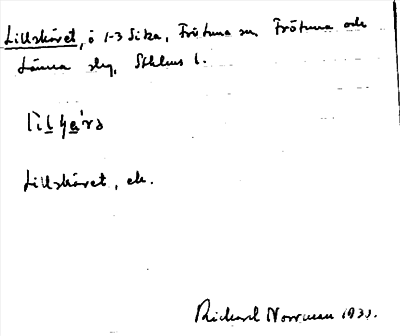 Lillskäret, ö 1-3 Sika, Frötuna sn, Frötuna och
Länna skg, Sthlms l.
Lillskäret, ek.
Richard Norrman 193